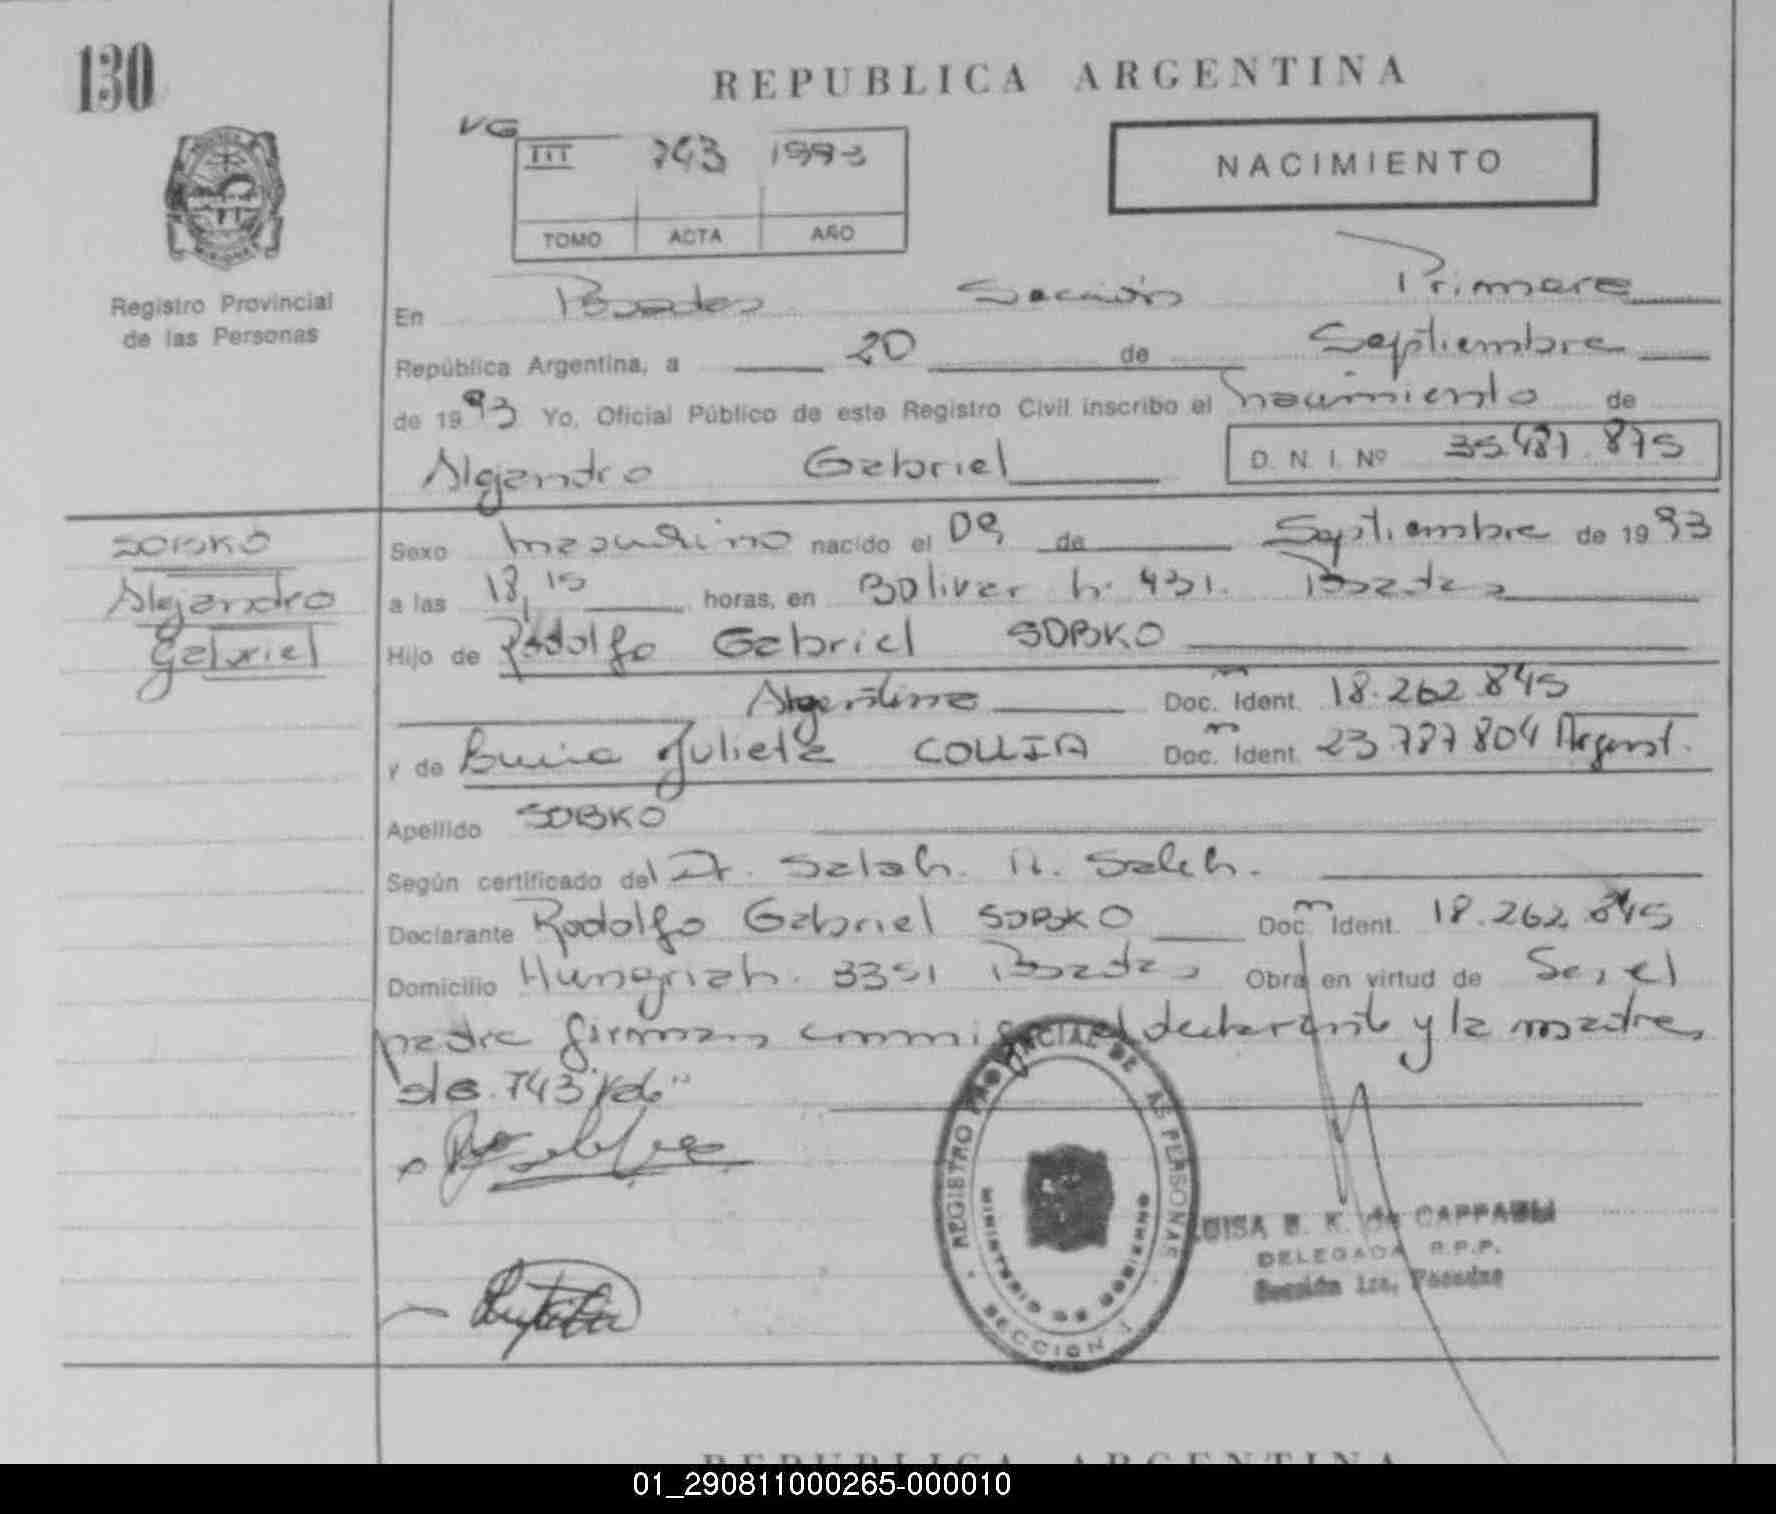 130
REPUBLICA ARGENTINA
VG
III 743 1993
TOMO ACTA AÑO
NACIMIENTO
Registro Provincial
de las Personas
En Posadas Sección Primera
República Argentina, a 20 de Septiembre
de 1993 Yo, Oficial Público de este Registro Civil inscribo el nacimiento de
Alejandro Gabriel D. N. I. Nº 35.487.875
SOBKO
Alejandro
Gabriel
Sexo masculino nacido el 09 de Septiembre de 1993
a las 18,15 horas, en Bolivar n. 431. Posadas
Hijo de Rodolfo Gabriel SOBKO
Argentino Doc. Ident. 18.262.845
y de Julieta Doc. Ident. 23.787.804 Argent.
Apellido SOBKO
Según certificado del Dr. Salah. Saleh.
Declarante Rodolfo Gabriel SOBKO Doc. Ident. 18.262.845
Domicilio 3351 Posadas Obra en virtud de Ser el
padre firman conmigo el declarante y la madre,
743
REGISTRO PROVINCIAL DE LAS PERSONAS
MINISTERIO DE GOBIERNO
SECCION 1
LUISA E. K. de
DELEGADA R.P.P.
Sección 1ra, Posadas
REPUBLICA ARGENTINA
01_290811000265-000010